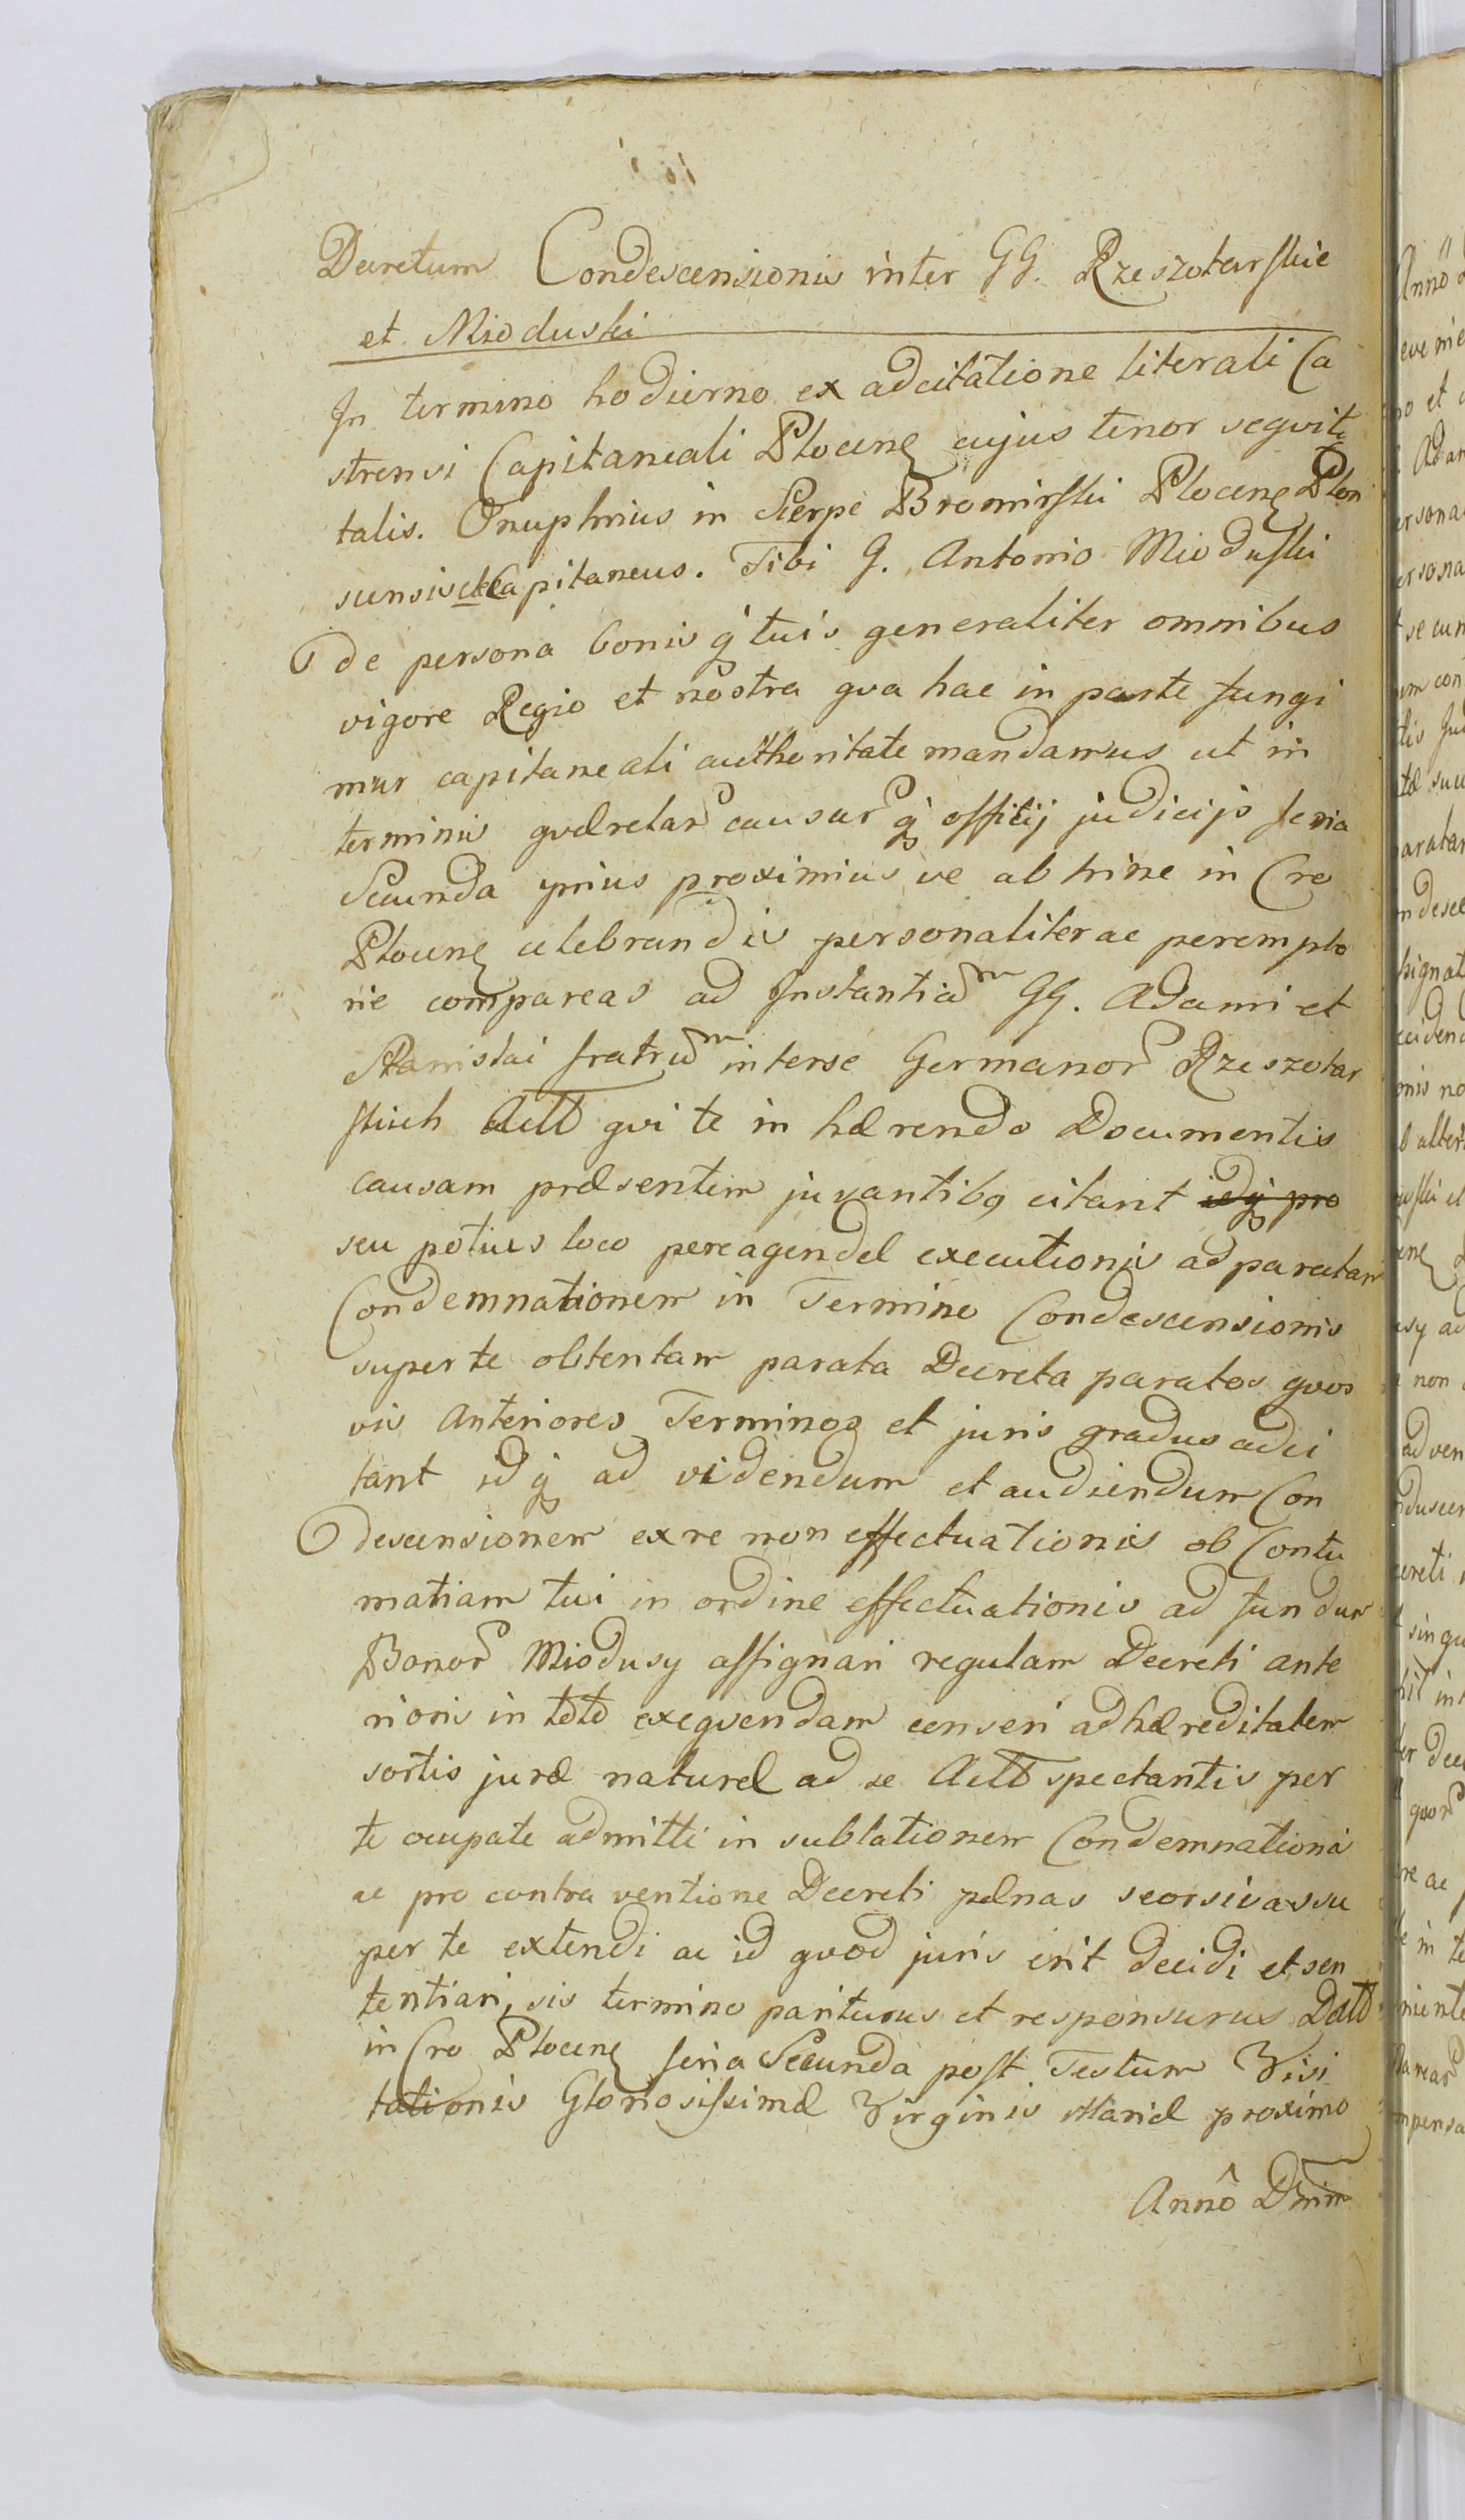 Decretum Condescensionis inter GG. Rzeszotarskie
et Mioduski
In termino hodierno ex adcitatione literali Ca
strensi Capitaneali Plocen cujus tenor seqvitr
talis. Onuphrius in Sierpc Bromirski Plocen Plon
scensis etc Capitaneus. Tibi G. Antonio Mioduski
de persona bonis q tuis generaliter omnibus
vigore Regio et nostra qva hac in parte fungi
mur capitaneali authoritate mandamus ut in
terminis qværelar causar q officij judicijs feria
Secunda prius proximius ve ab hinc in Cro
Plocen celebrandis personaliter ac perempto
rie compareas ad Instantiam GG. Adami et
Stanislai fratrum inter se Germanor Rzeszotar
skich Actt qvi te in hærendo Documentis
causam præsentem juvantibq citant idq pro
seu potius loco peragendæ executionis ad paratam
Condemnationem in Termino Condescensionis
super te obtentam parata Decreta paratos qvos
vis Anteriores Terminos et juris gradus adci
tant id q ad videndum et audiendum Con
descensionem ex re non effectuationis ob Contu
matiam tui in ordine effectuationis ad fundum
Bonor Miodusy assignari regulam Decreti ante
rioris in toto exeqvendam censeri ad hæreditatem
sortis juræ naturæ ad se Actt spectantis per
te ocupatæ admitti in sublationem Condemnationis
ac pro contra ventione Decreti pænas seorsivas su
per te extendi ac id qvod juris erit decidi et sen
tentiari, sis termino pariturus et responsurus Datt
in Cro Plocen feria Secunda post Festum Visi
tationis Gloriosissimæ Virginis Mariæ proximo
Anno Dnim